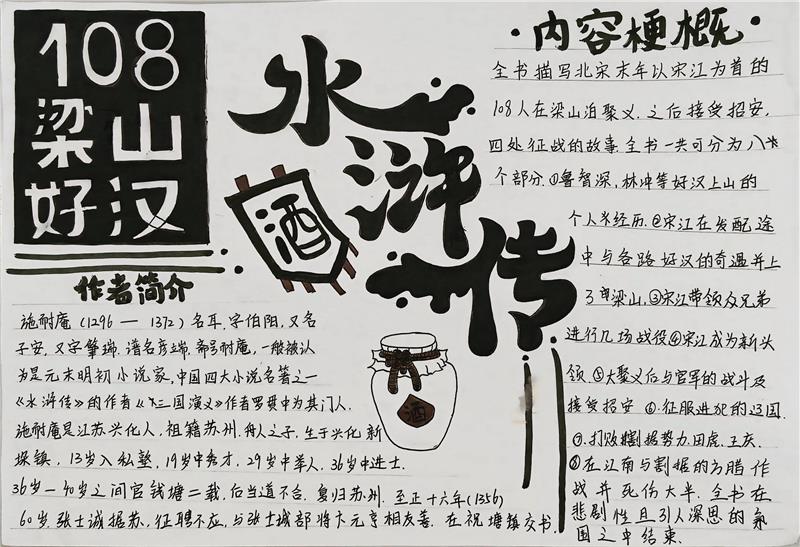 108
梁山
好汉
水浒传
酒
酒
·内容梗概·
全书描写北宋末年以宋江为首的
108人在梁山泊聚义.之后接受招安,
四处征战的故事.全书一共可分为八
个部分.①鲁智深,林冲等好汉上山的
个人经历.②宋江在发配途
中与各路好汉的奇遇并上
了梁山.③宋江带领众兄弟
进行几场战役④宋江成为新头
领.⑤大聚义后与官军的战斗及
接受招安 ⑥.征服进犯的辽国.
⑦.打败割据势力.田虎.王庆.
⑧在江南与割据的方腊作
战并死伤大半.全书在
悲剧性且引人深思的氛
围之中结束.
作者简介
施耐庵(1296—1372)名耳,字伯阳,又名
子安,又字肇瑞.谱名彦端.斋号耐庵,一般被认
为是元末明初小说家,中国四大小说名著之一
《水浒传》的作者《三国演义》作者罗贯中为其门人.
施耐庵是江苏兴化人,祖籍苏州.舟人之子,生于兴化新
垛镇,13岁入私塾,19岁中秀才,29岁中举人.36岁中进士.
36岁—40岁之间官钱塘二载,后当道不合.复归苏州.至正十六年(1356)
60岁.张士诚据苏,征聘不应,与张士诚部将卞元亨相友善.在祝塘镇教书.